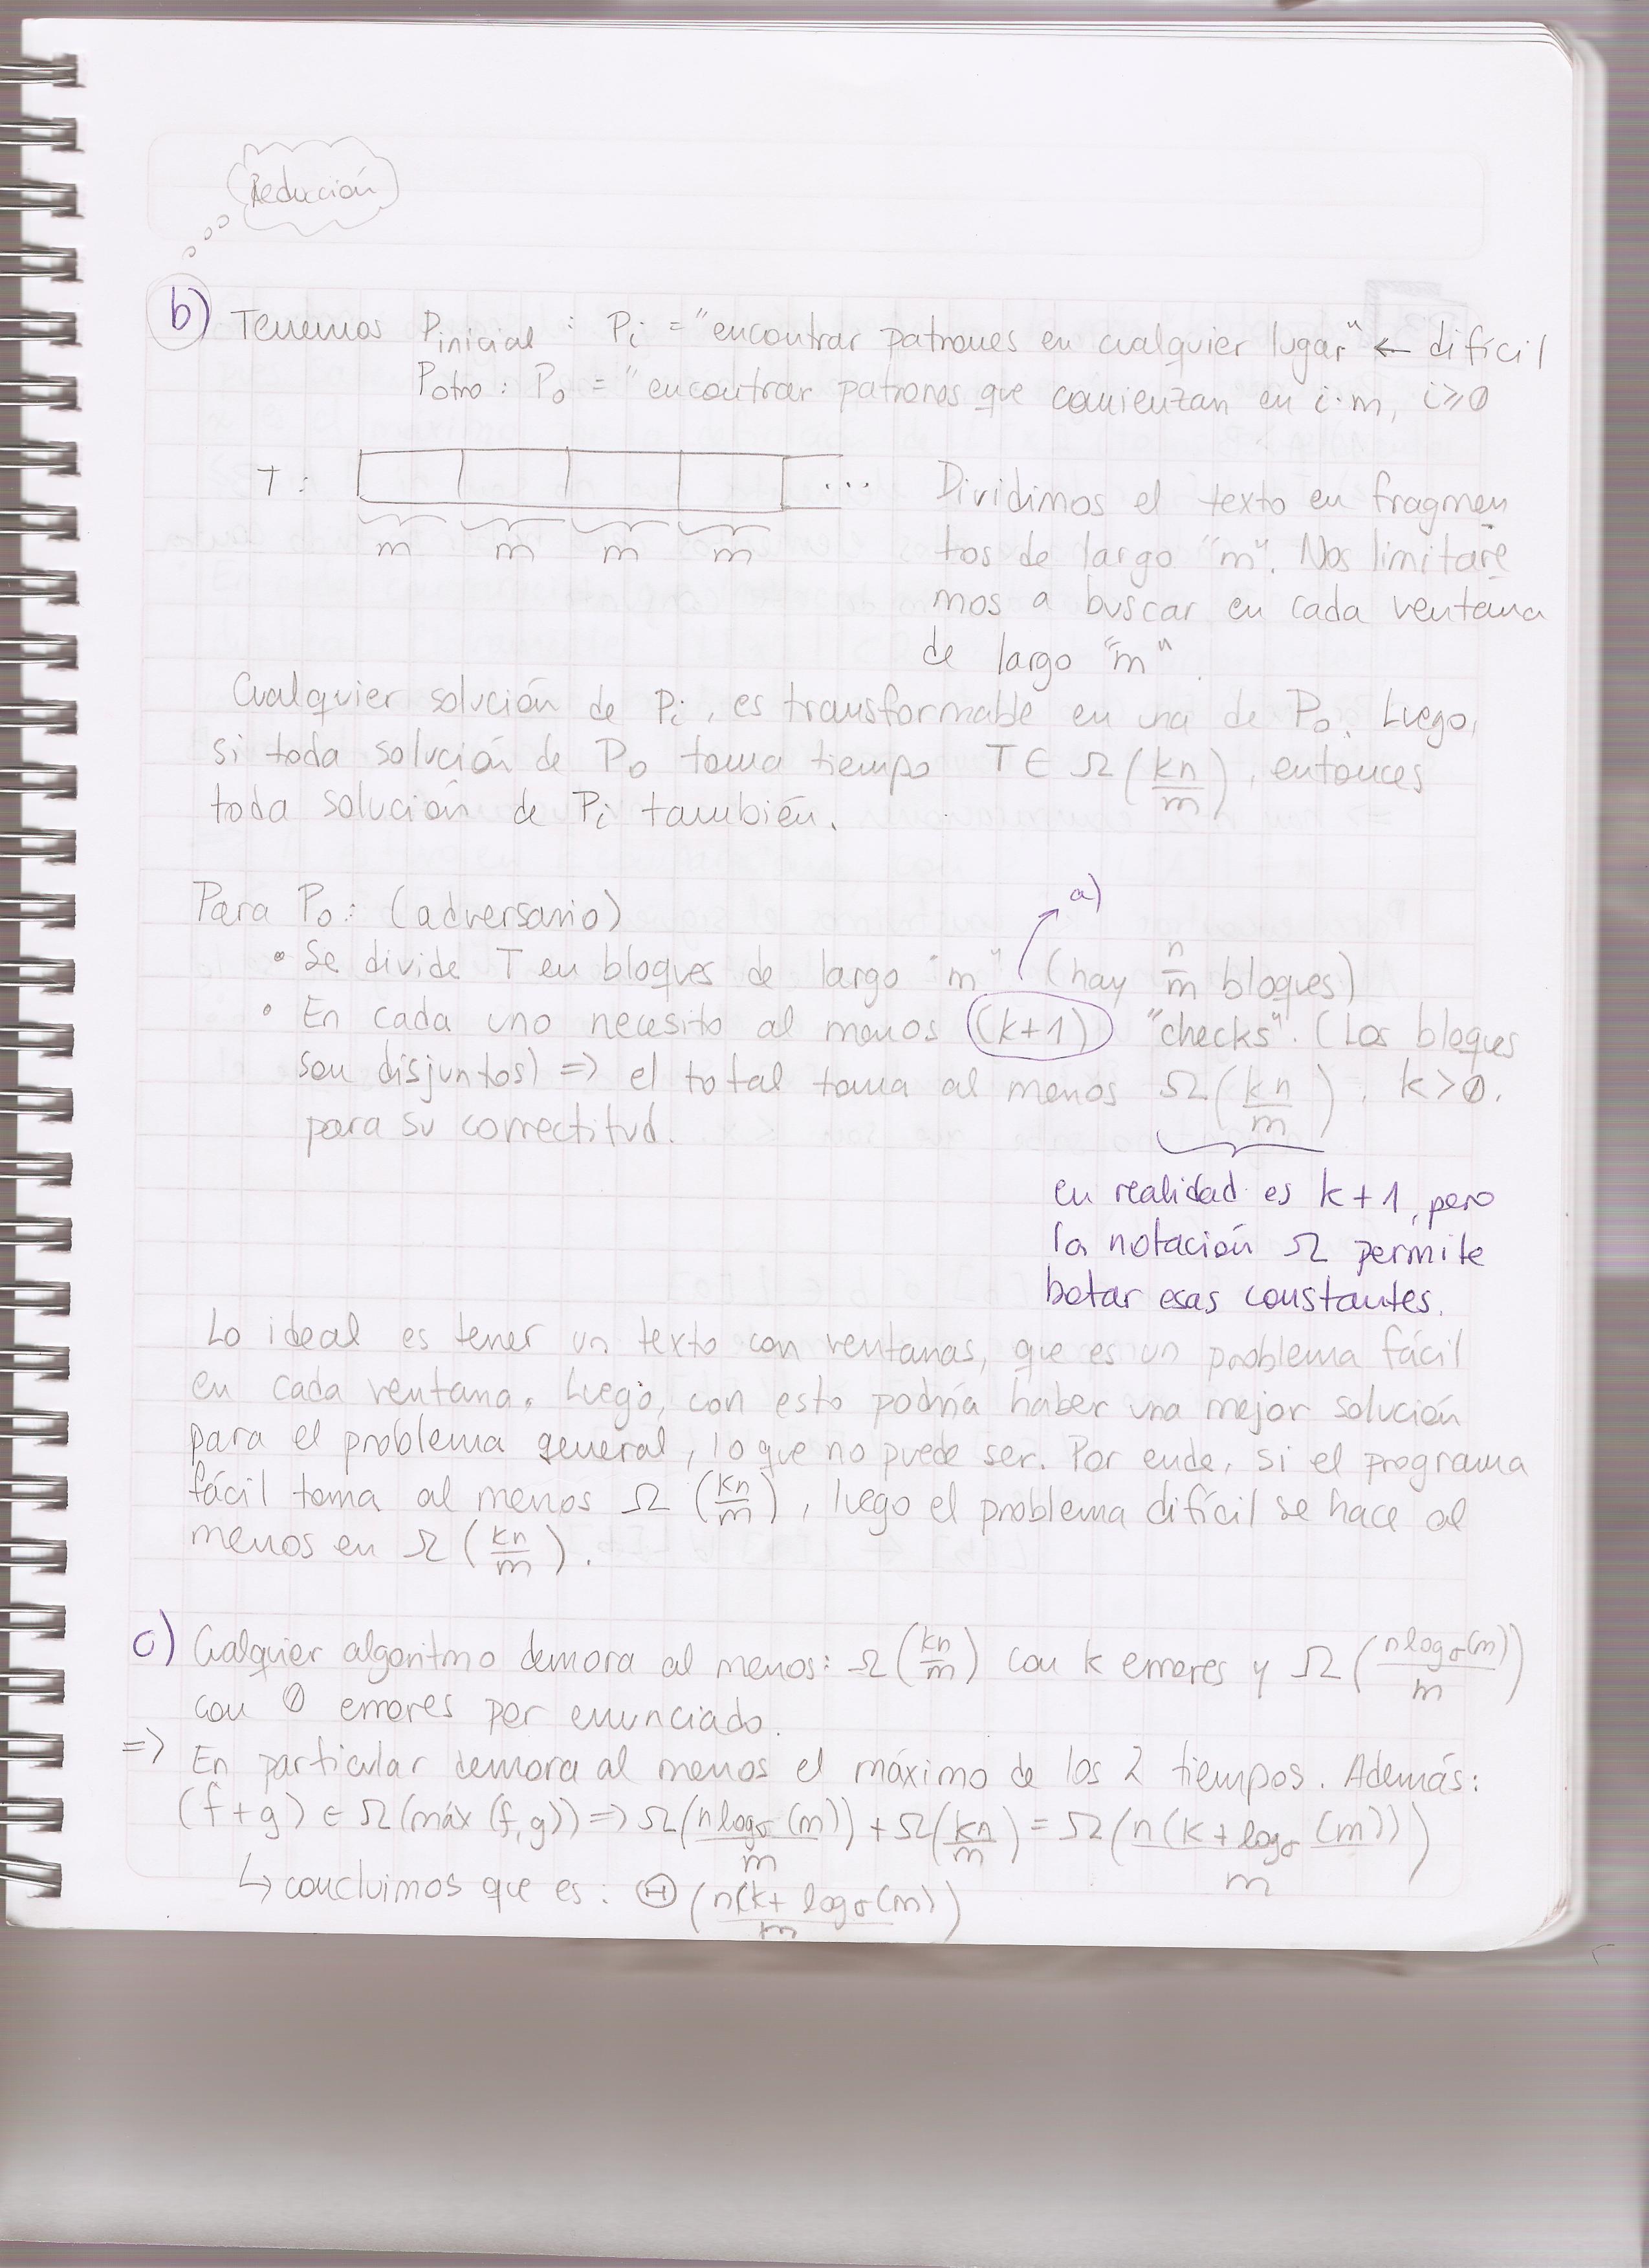 Reducción
b) Tenemos Pinicial : Pi = "encontrar patrones en cualquier lugar" ← difícil
Potro : Po = "encontrar patrones que comienzan en i·m, i≥0
T : ...
m m m m
Dividimos el texto en fragmen
tos de largo "m". Nos limitare
mos a buscar en cada ventana
de largo "m".
Cualquier solución de Pi, es transformable en una de Po. Luego,
si toda solución de Po toma tiempo T ∈ Ω(kn/m), entonces
toda solución de Pi también.
a)
Para Po: (adversario)
• Se divide T en bloques de largo "m" (hay n/m bloques)
• En cada uno necesito al menos (k+1) "checks". (Los bloques
son disjuntos) => el total toma al menos Ω(kn/m), k>0.
para su correctitud.
en realidad es k+1, pero
la notación Ω permite
botar esas constantes.
Lo ideal es tener un texto con ventanas, que es un problema fácil
en cada ventana. Luego, con esto podría haber una mejor solución
para el problema general, lo que no puede ser. Por ende, si el programa
fácil toma al menos Ω(kn/m), luego el problema difícil se hace al
menos en Ω(kn/m).
c) Cualquier algoritmo demora al menos: Ω(kn/m) con k errores y Ω(nlogσ(m)/m)
con 0 errores por enunciado.
=> En particular demora al menos el máximo de los 2 tiempos. Además:
(f+g) ∈ Ω(máx(f,g)) => Ω(nlogσ(m)/m) + Ω(kn/m) = Ω(n(k+logσ(m))/m)
↳ concluimos que es: Θ(n(k+logσ(m))/m)